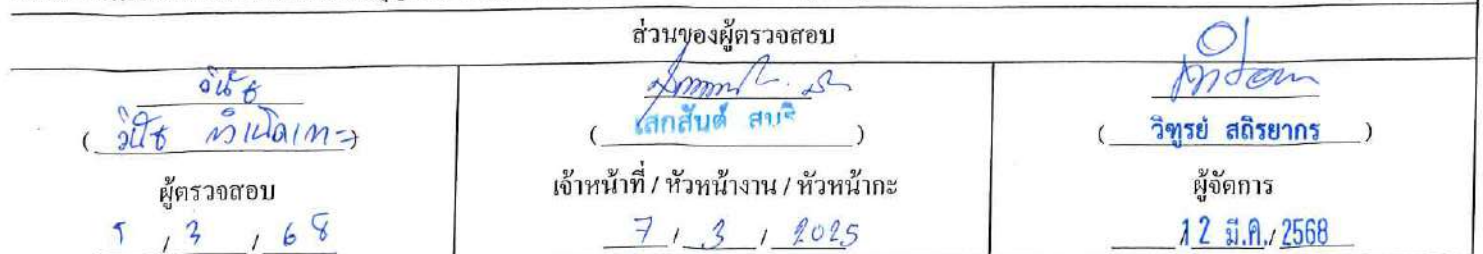 ส่วนของผู้ตรวจสอบ
วินัช
( วินัช )
ผู้ตรวจสอบ
5 / 3 / 68
( เสกสันต์ )
เจ้าหน้าที่ / หัวหน้างาน / หัวหน้ากะ
7 / 3 / 2025
( วิฑูรย์ สถิรยากร )
ผู้จัดการ
12 มี.ค. / 2568